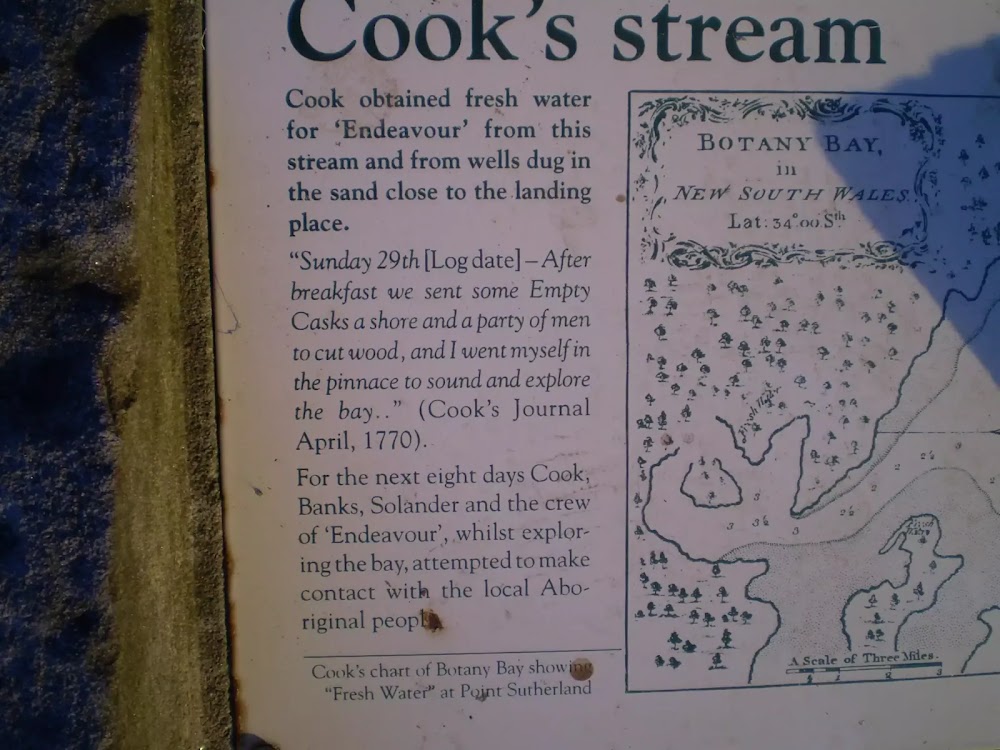 Cook's stream
Cook obtained fresh water
for 'Endeavour' from this
stream and from wells dug in
the sand close to the landing
place.
"Sunday 29th [Log date] – After
breakfast we sent some Empty
Casks a shore and a party of men
to cut wood, and I went myself in
the pinnace to sound and explore
the bay.." (Cook's Journal
April, 1770).
For the next eight days Cook,
Banks, Solander and the crew
of 'Endeavour', whilst explor-
ing the bay, attempted to make
contact with the local Abo-
riginal peopl
Cook's chart of Botany Bay showing
"Fresh Water" at Point Sutherland
BOTANY BAY,
in
NEW SOUTH WALES.
Lat: 34°.00 Sth
A Scale of Three Miles.